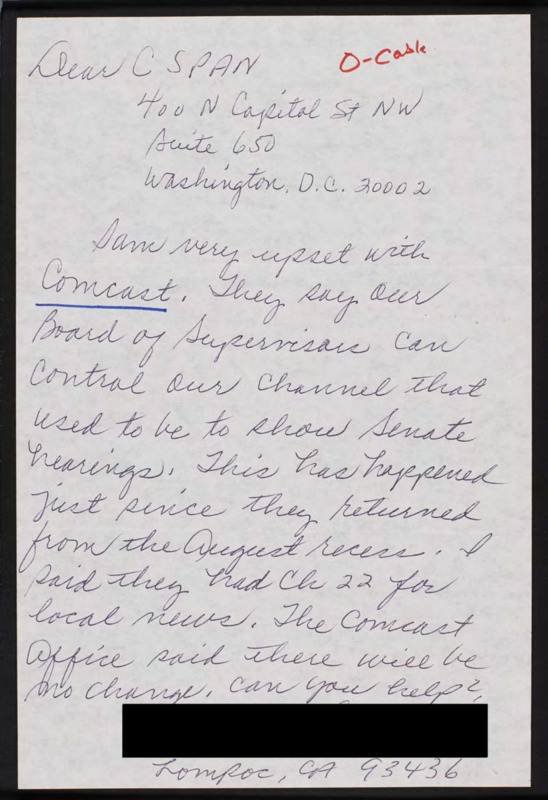 Dear C SPAN
O-Cable
400 N Capitol St NW
Suite 650
Washington, D.C. 20002
I am very upset with
Comcast. They say our
Board of Supervisors can
control our channel that
used to be to show Senate
hearings. This has happened
just since they returned
from the August recess. I
said they had Ch 22 for
local news. The Comcast
Office said there will be
no change. Can you help?
Lompoc, CA 93436